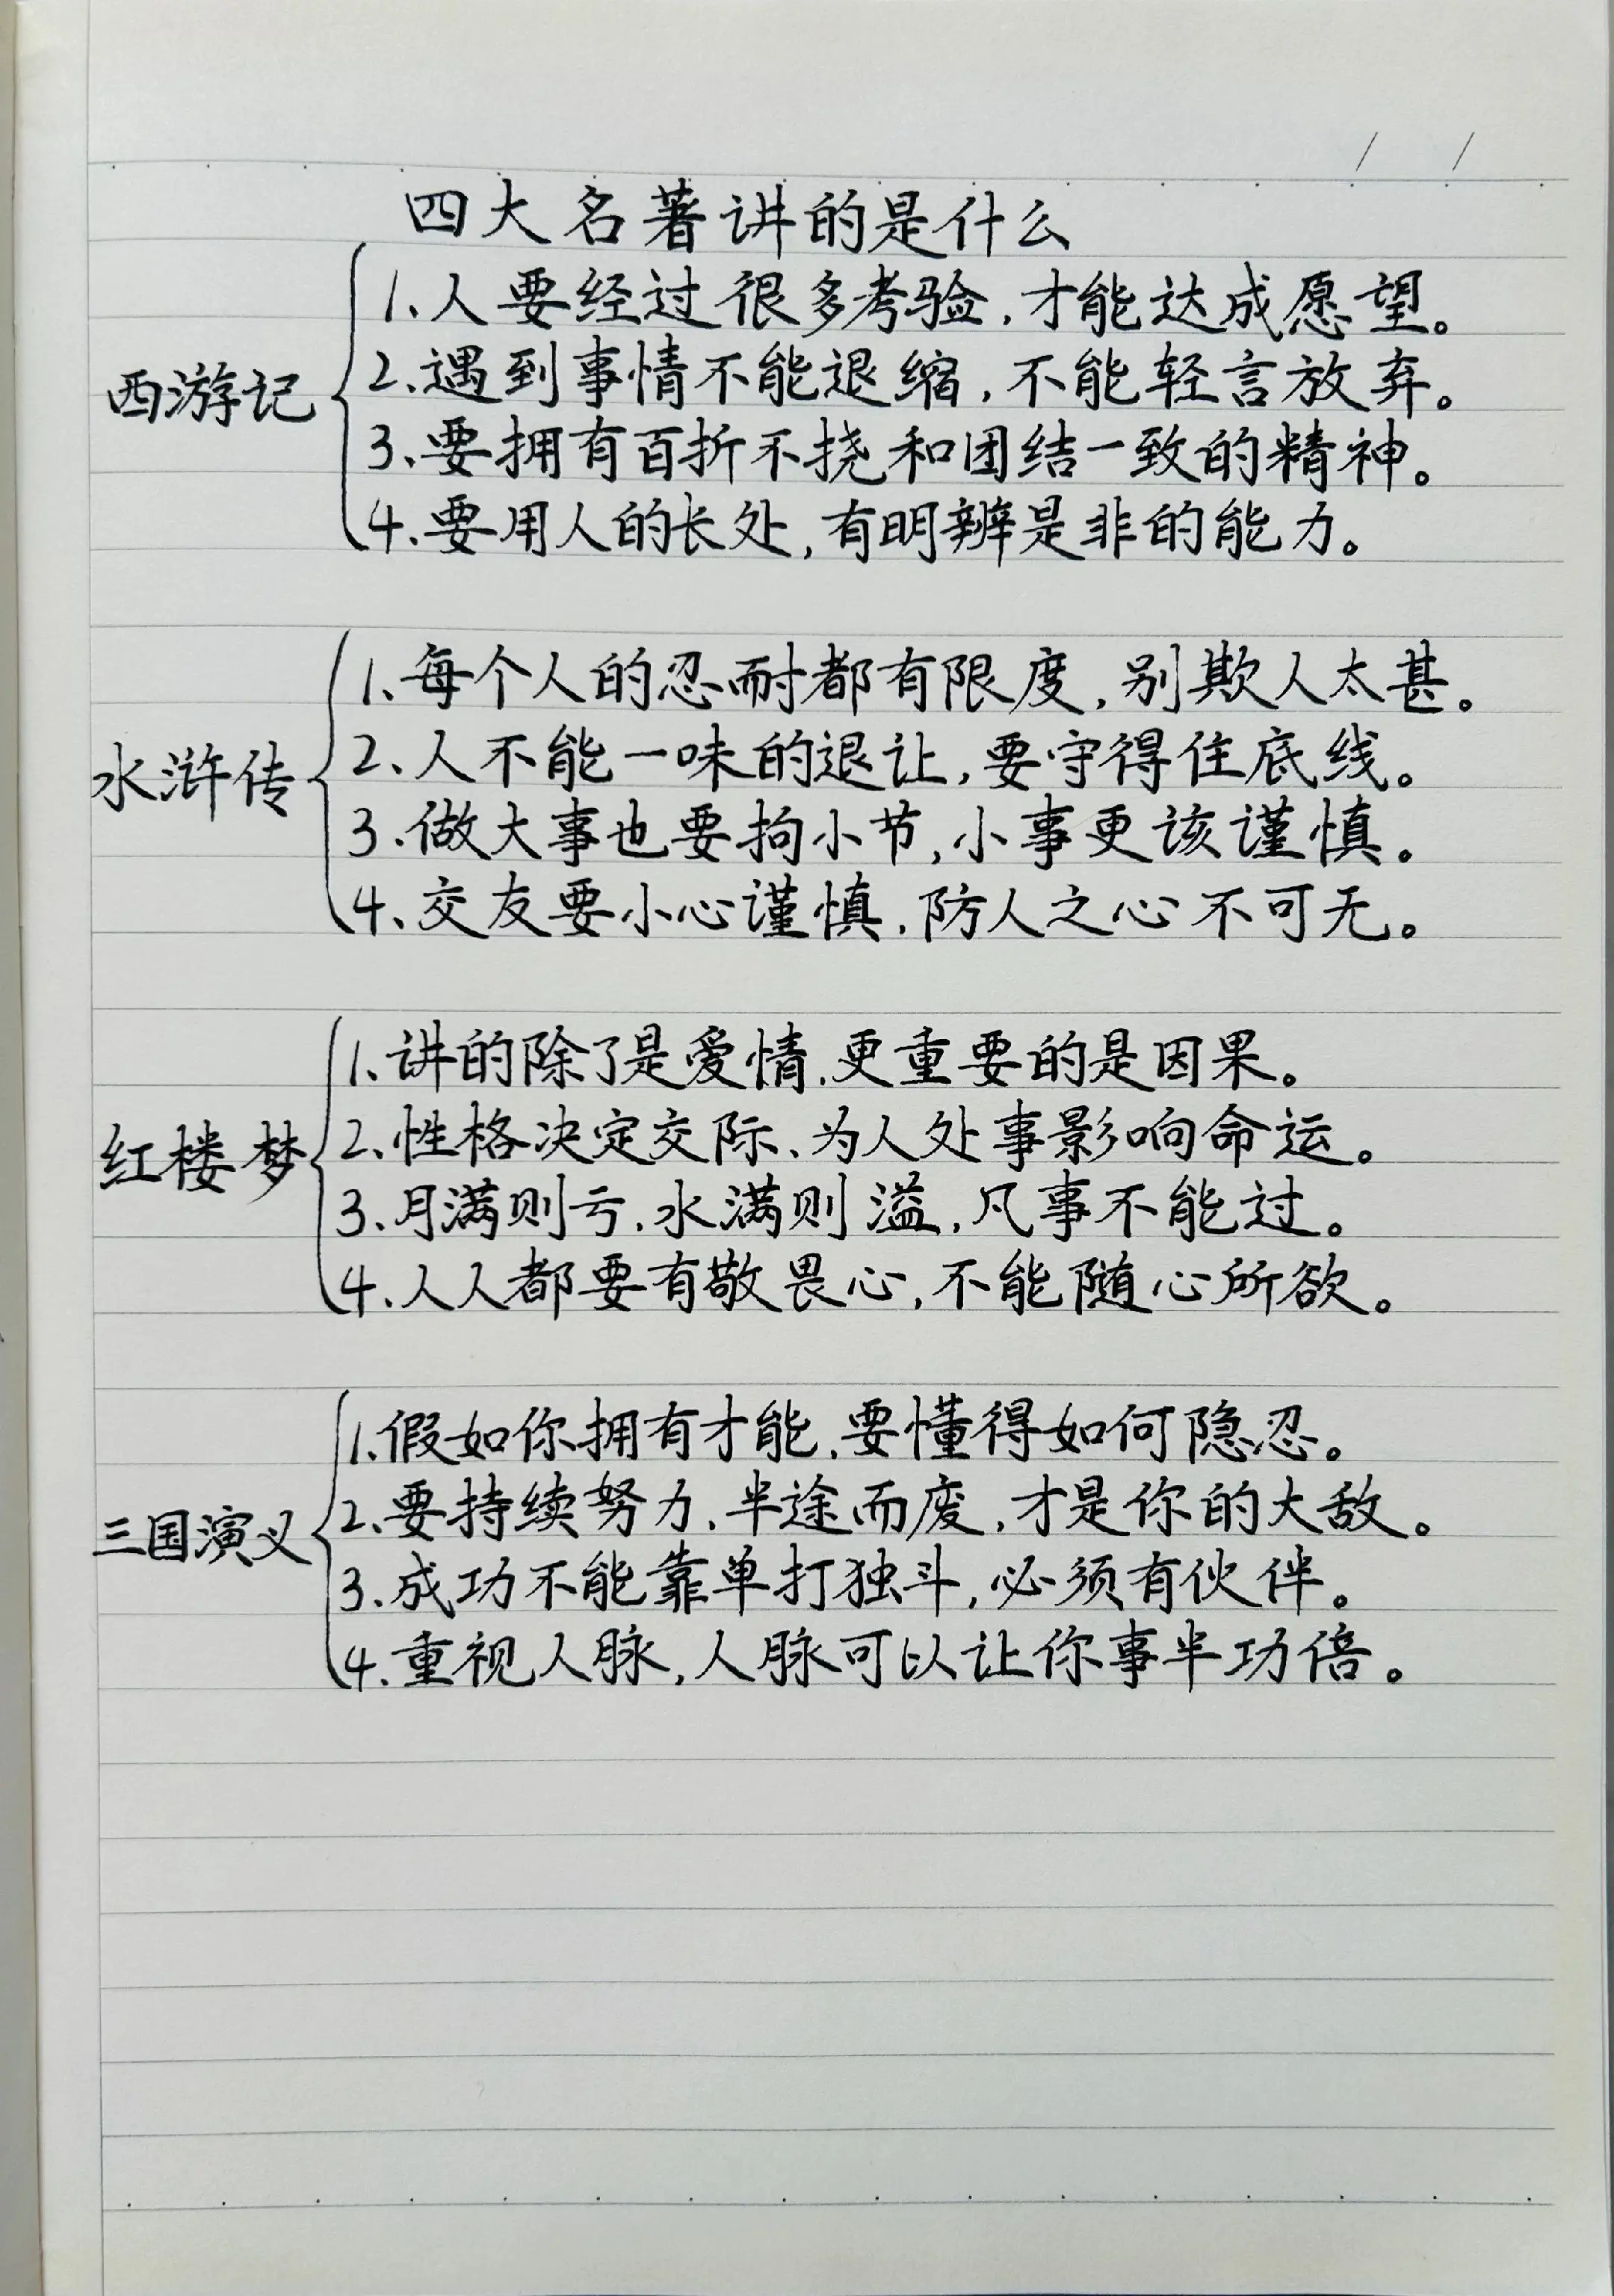 四大名著讲的是什么
西游记
1、人要经过很多考验,才能达成愿望。
2、遇到事情不能退缩,不能轻言放弃。
3、要拥有百折不挠和团结一致的精神。
4、要用人的长处,有明辨是非的能力。
水浒传
1、每个人的忍耐都有限度,别欺人太甚。
2、人不能一味的退让,要守得住底线。
3、做大事也要拘小节,小事更该谨慎。
4、交友要小心谨慎,防人之心不可无。
红楼梦
1、讲的除了是爱情,更重要的是因果。
2、性格决定交际、为人处事影响命运。
3、月满则亏,水满则溢,凡事不能过。
4、人人都要有敬畏心,不能随心所欲。
三国演义
1、假如你拥有才能,要懂得如何隐忍。
2、要持续努力,半途而废,才是你的大敌。
3、成功不能靠单打独斗,必须有伙伴。
4、重视人脉,人脉可以让你事半功倍。